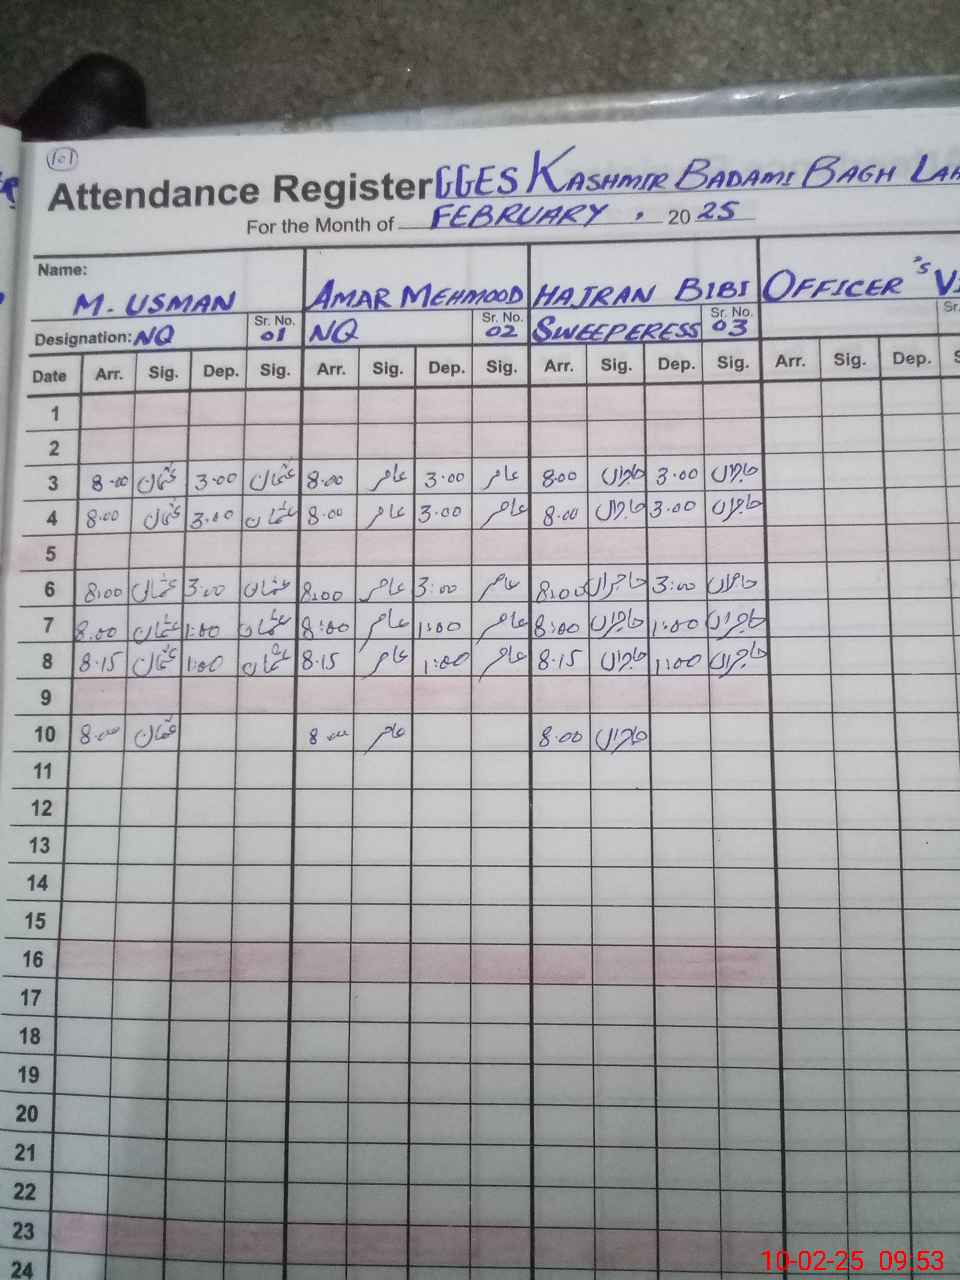 101
Attendance Register GGES KASHMIR BADAMI BAGH LAH
For the Month of FEBRUARY . 2025
Name: M. USMAN AMAR MEHMOOD HAJRAN BIBI OFFICER'S VI
Designation: NQ Sr. No. 01 NQ Sr. No. 02 SWEEPERESS Sr. No. 03 Sr.
Date Arr. Sig. Dep. Sig. Arr. Sig. Dep. Sig. Arr. Sig. Dep. Sig. Arr. Sig. Dep. S
1
2
3 8.00 عثمان 3.00 عثمان 8.00 عامر 3.00 عامر 8.00 حاجراں 3.00 حاجراں
4 8.00 عثمان 3.00 عثمان 8.00 عامر 3.00 عامر 8.00 حاجراں 3.00 حاجراں
5
6 8:00 عثمان 3:00 عثمان 8:00 عامر 3:00 عامر 8:00 حاجراں 3:00 حاجراں
7 8.00 عثمان 1:00 عثمان 8:00 عامر 1:00 عامر 8:00 حاجراں 1:00 حاجراں
8 8.15 عثمان 1:00 عثمان 8.15 عامر 1:00 عامر 8.15 حاجراں 1:00 حاجراں
9
10 8.00 عثمان 8.00 عامر 8.00 حاجراں
11
12
13
14
15
16
17
18
19
20
21
22
23
24
10-02-25 09:53